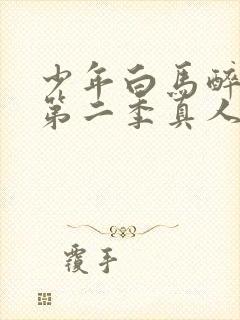 少年白馬醉
第二季真人
覆手